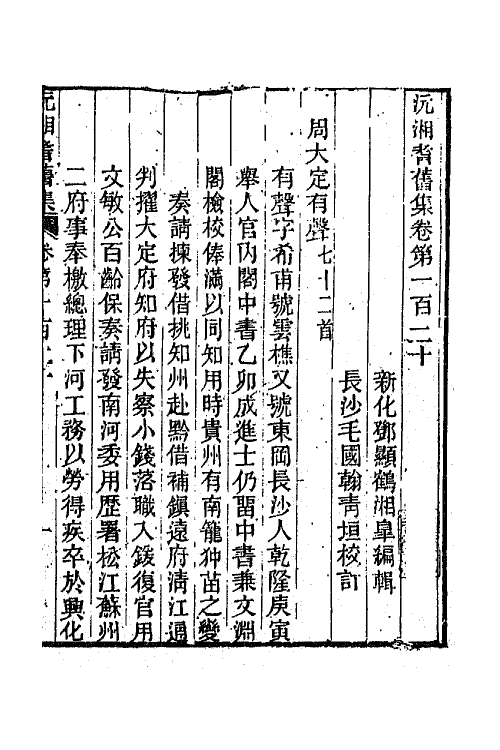 沅湘耆舊集卷第一百二十
新化鄧顯鶴湘皐編輯
長沙毛國翰靑垣校訂
周大定有聲七十二首
有聲字希甫號雲樵又號東岡長沙人乾隆庚寅
舉人官內閣中書乙卯成進士仍畱中書兼文淵
閣檢校俸滿以同知用時貴州有南籠狆苗之變
奏請揀發借挑知州赴黔借補鎭遠府淸江通
判擢大定府知府以失察小錢落職入鍰復官用
文敏公百齡保奏請發南河委用歴署松江蘇州
二府事奉檄總理下河工務以勞得疾卒於興化
沅湘耆舊集 卷第一百二十 一